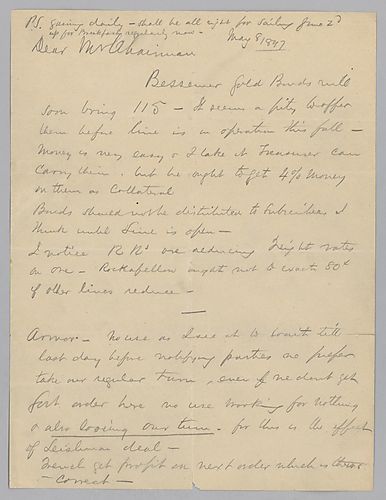 P.S. gaining daily – shall be all right for sailing June 2d
up for Breakfast regularly now –
May 8/1897
Dear Mr Chairman
Bessemer Gold Bonds will
soon bring 115 – It seems a pity to offer
them before line is in operation this fall –
Money is very easy & I take it Treasurer can
carry them. but he ought to get 4% money
on them as Collateral
Bonds should not be distributed to Subscribers I
think until Line is open –
I notice R Rds are reducing freight rates
on ore – Rockafellow ought not to exact 80c
if other lines reduce –
Armor – No use as I see it to wait till
last day before notifying parties we prefer
take our regular turn, even if we dont get
first order here no use working for nothing
& also loosing our turn – for this is the effect
of Leishman deal –
French get profit on next order which is
– Correct –